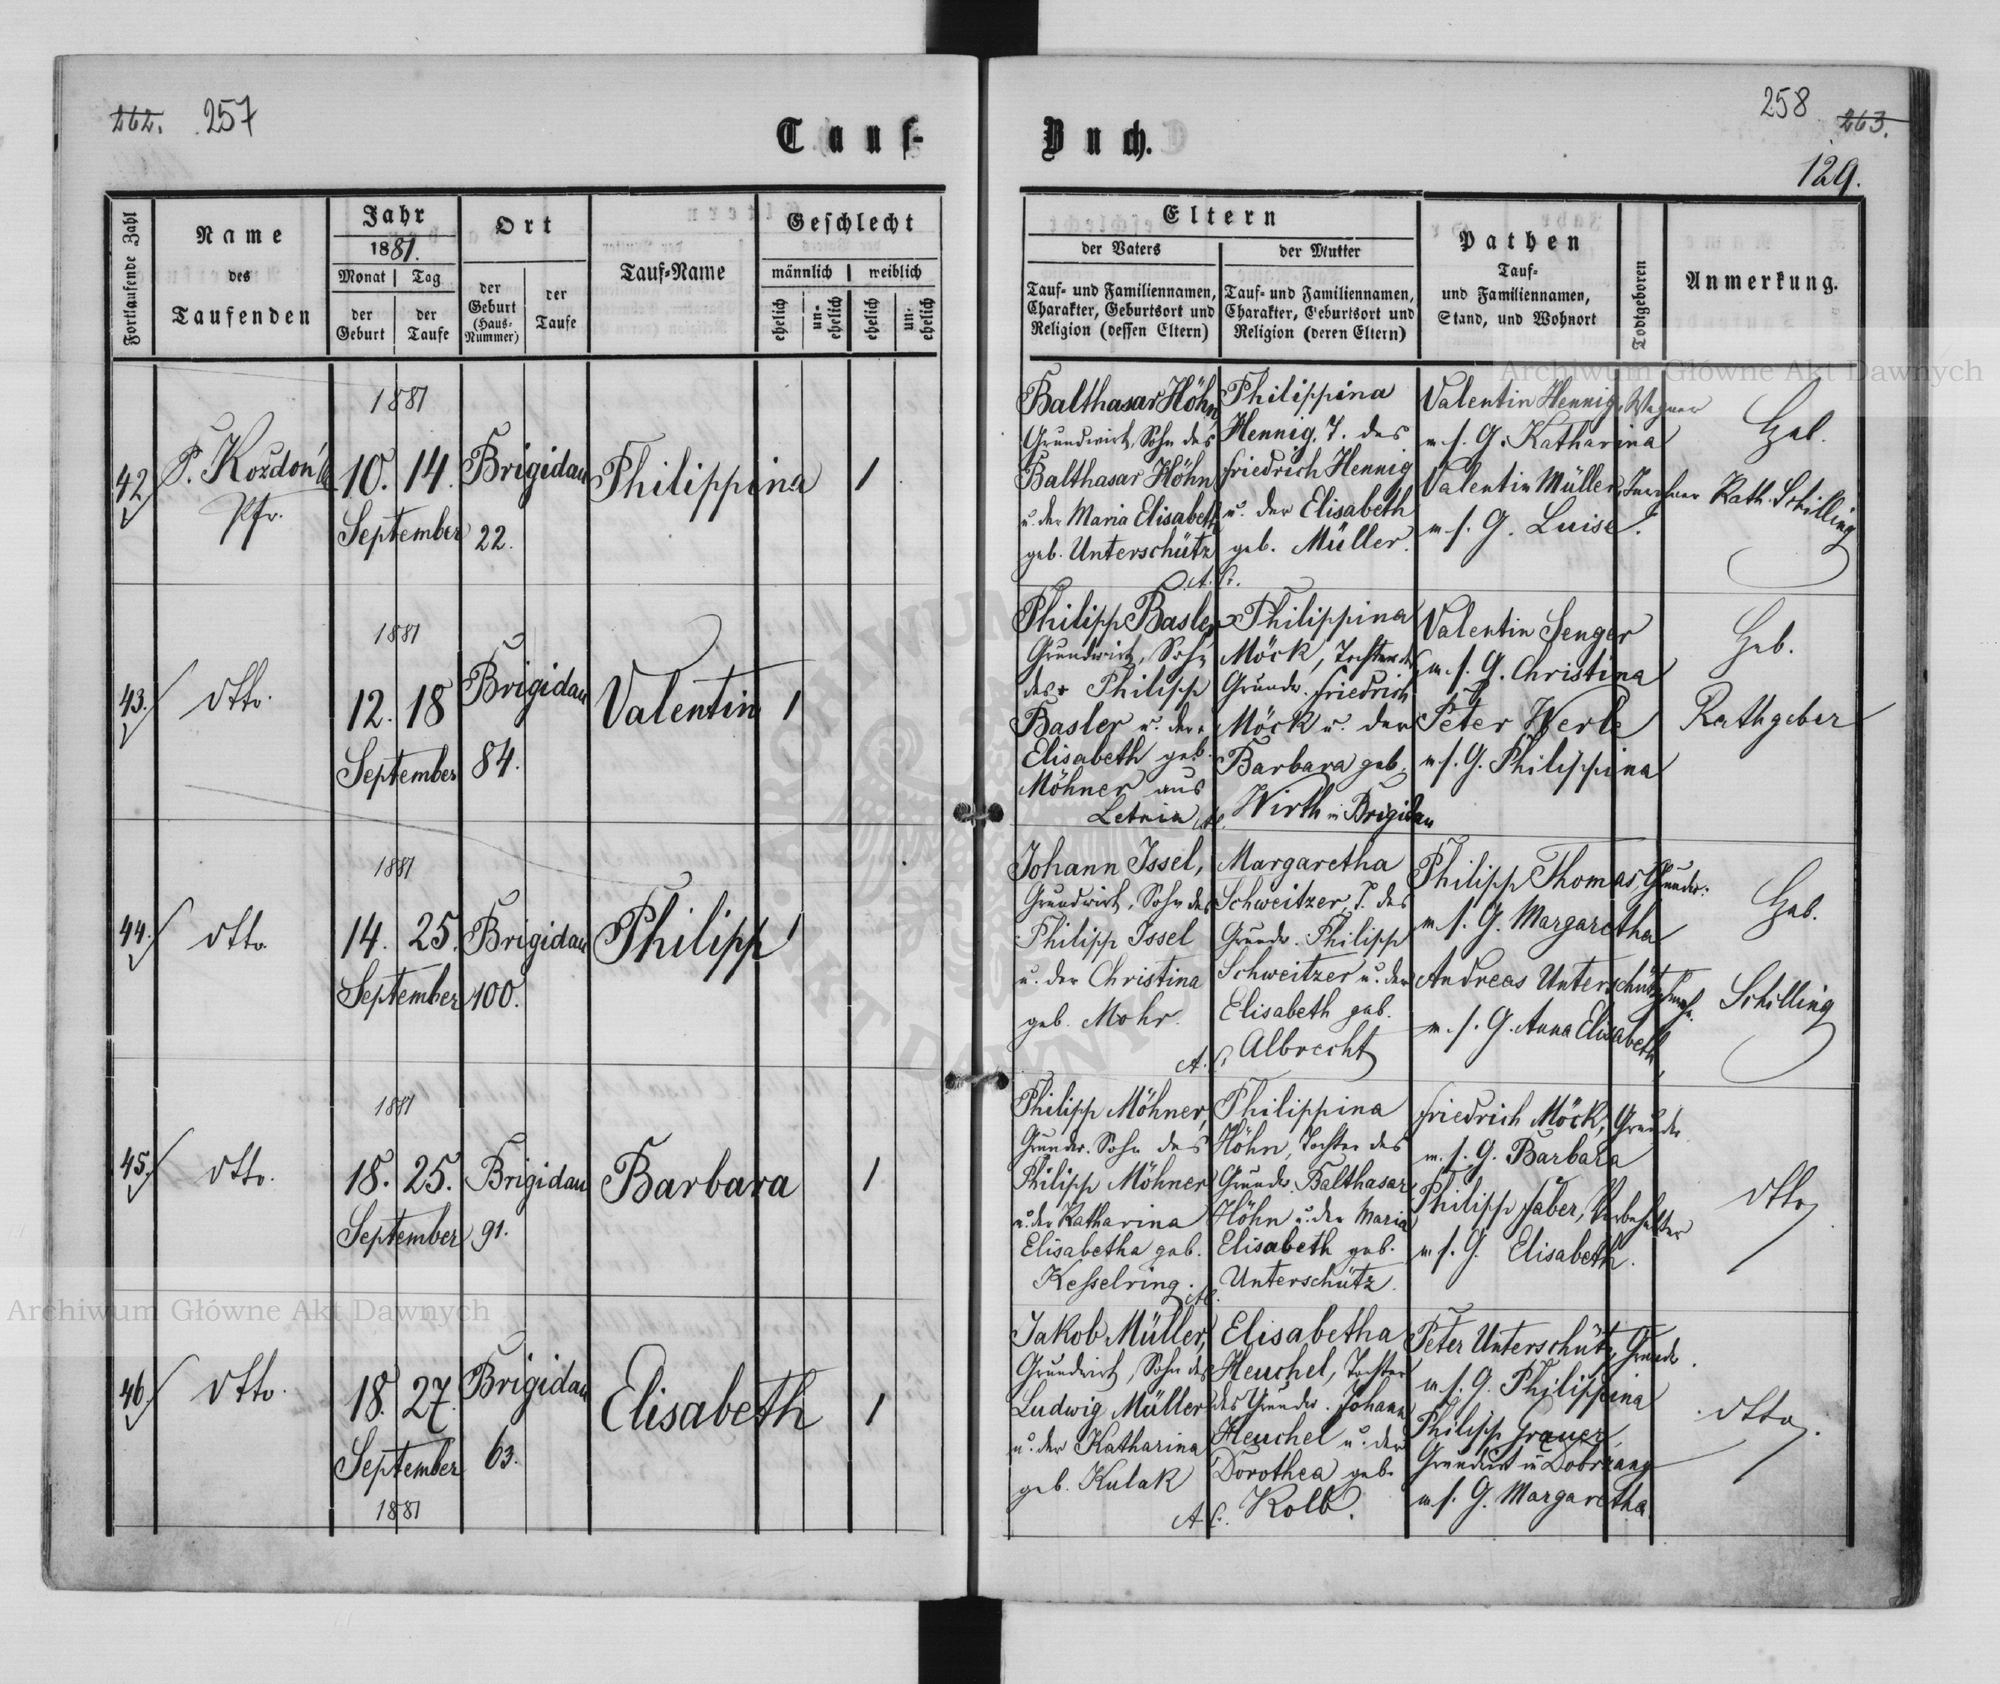 262. 257
Tauf-
Fortlaufende Zahl
Name
des
Taufenden
Jahr
1881.
Monat
Tag
der
Geburt
der
Taufe
Ort
der
Geburt
(Haus-
Nummer)
der
Taufe
Tauf-Name
Geschlecht
männlich
weiblich
ehelich
un-
ehelich
ehelich
un-
ehelich
42
P.
Pfr.
1881
10. 14.
September
Brigidau
22.
Philippina
1
43.
dtto.
1881
12. 18
September
Brigidau
84.
Valentin
1
44.
dtto.
1881
14. 25.
September
Brigidau
100.
Philipp
1
45.
dtto.
1881
18. 25.
September
Brigidau
91.
Barbara
1
46.
dtto.
18. 27.
September
1881
Brigidau
63.
Elisabeth
1
258 263.
129.
Buch.
Eltern
der Vaters
der Mutter
Tauf- und Familiennamen,
Charakter, Geburtsort und
Religion (dessen Eltern)
Tauf- und Familiennamen,
Charakter, Geburtsort und
Religion (deren Eltern)
Pathen
Tauf-
und Familiennamen,
Stand, und Wohnort
Todtgeboren
Anmerkung.
Balthasar Höhn,
Grundwirt, Sohn des
Balthasar Höhn
u. der Maria Elisabeth
geb. Unterschütz
A. C.
Philippina
Hennig, T. des
Friedrich Hennig
u. der Elisabeth
geb. Müller.
Valentin Hennig, Wagner
m. s. G. Katharina
Valentin Müller,
m. s. G. Luise.
Heb.
Kath. Schilling
Philipp Basler
Grundwirt, Sohn
des Philipp
Basler u. der
Elisabeth geb.
Möhner aus
Philippina
Möck, Tochter des
Grundw. Friedrich
Möck u. der
Barbara geb.
Wirth in Brigidau
Valentin Senger
m. s. G. Christina
Peter Werle
m. s. G. Philippina
Heb.
Rathgeber
Johann Issel,
Grundwirt, Sohn des
Philipp Issel
u. der Christina
geb. Mohr.
A. C.
Margaretha
Schweitzer, T. des
Grundw. Philipp
Schweitzer u. der
Elisabeth geb.
Albrecht
Philipp Thomas, Grundw.
m. s. G. Margaretha
Andreas Unterschütz,
m. s. G. Anna Elisabeth
Heb.
Schilling
Philipp Möhner,
Grundw. Sohn des
Philipp Möhner
u. der Katharina
Elisabetha geb.
Kesselring.
Philippina
Höhn, Tochter des
Grundw. Balthasar
Höhn u. der Maria
Elisabeth geb.
Unterschütz.
Friedrich Möck, Grundw.
m. s. G. Barbara
Philipp Faber,
m. s. G. Elisabeth.
dtto
Jakob Müller,
Grundwirt, Sohn des
Ludwig Müller
u. der Katharina
geb. Kulak
A. C.
Elisabetha
Heuchel, Tochter
des Grundw. Johann
Heuchel u. der
Dorothea geb.
Kolb.
Peter Unterschütz, Grundw.
m. s. G. Philippina
Philipp Grauer,
Grundwirt in
m. s. G. Margaretha.
dtto.
Archiwum Główne Akt Dawnych
Archiwum Główne Akt Dawnych